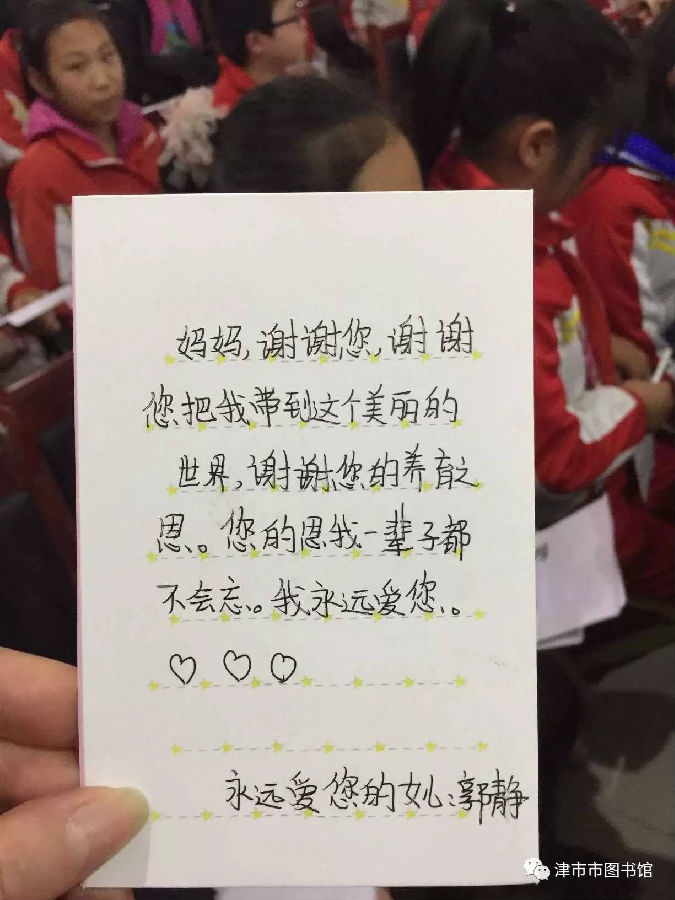 妈妈,谢谢您,谢谢
您把我带到这个美丽的
世界,谢谢您的养育之
恩。您的恩我一辈子都
不会忘。我永远爱您。
♡ ♡ ♡
永远爱您的女儿:郭静
津市市图书馆